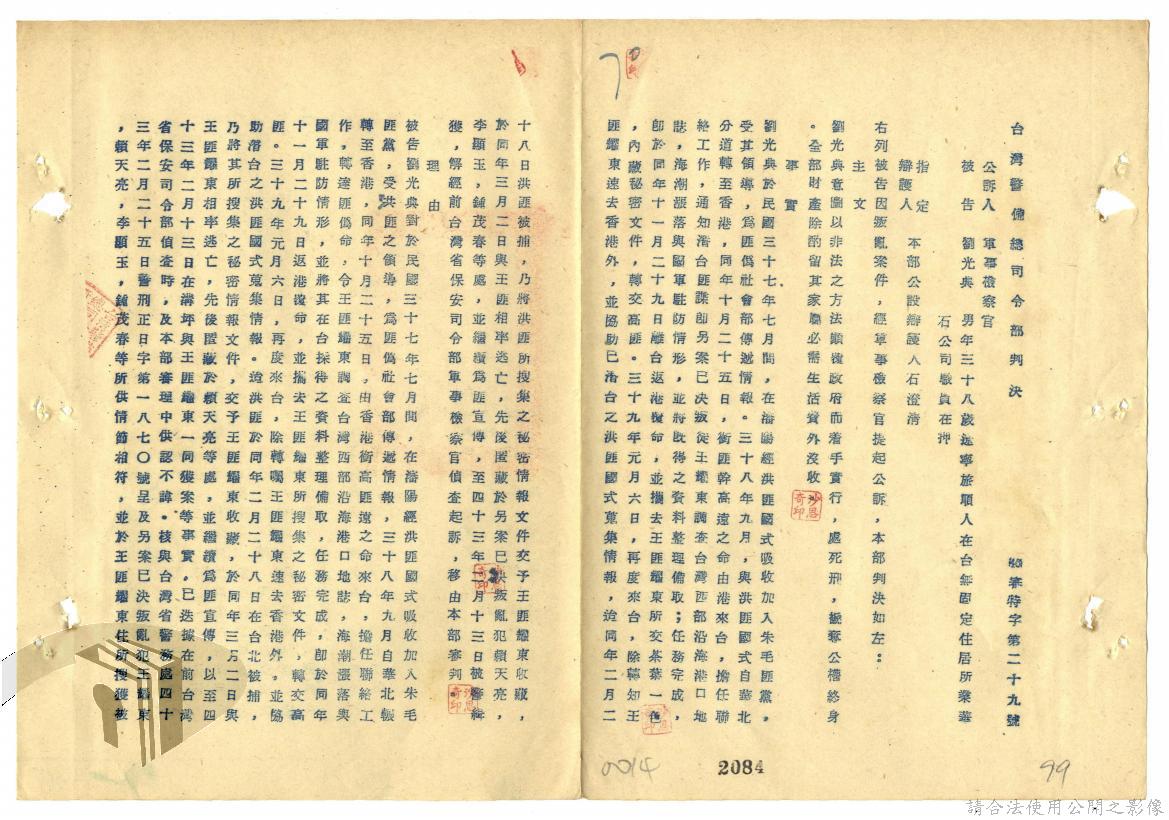 台灣警備總司令部判決
審特字第二十九號
公訴人　軍事檢察官
被告　劉光典　男年三十八歲遼寧旅順人在台無固定住居所業
石公司職員在押
指定
辯護人　本部公設辯護人石澄清
右列被告因叛亂案件，經軍事檢察官提起公訴，本部判決如左：
主文
劉光典意圖以非法之方法顛覆政府而着手實行，處死刑，褫奪公權終身
。全部財產除酌留其家屬必需生活費外沒收
事實
劉光典於民國三十七年七月間，在瀋陽經洪匪國式吸收加入朱毛匪黨，
受其領導，爲匪僞社會部傳遞情報。三十八年九月，與洪匪國式自華北
分道轉至香港，同年十月二十五日，銜匪幹高遠之命由港來台，擔任聯
絡工作，通知潛台匪諜卽另案已決叛徒王耀東調查台灣西部沿海港口地
誌，海潮漲落與國軍駐防情形，並將旣得之資料整理備取；任務完成，
卽於同年十一月二十九日離台返港復命，並攜去王匪耀東所交茶葉一包
，內藏秘密文件，轉交高匪。三十九年元月六日，再度來台，除轉知王
匪耀東速去香港外，並協助已潛台之洪匪國式蒐集情報，迨同年二月二
十八日洪匪被捕，乃將洪匪所搜集之秘密情報文件交予王匪耀東收藏，
於同年三月二日與王匪相率逃亡，先後匿藏於另案已決叛亂犯賴天亮，
李顯玉，鍾茂春等處，並繼續爲匪宣傳，至四十三年二月十三日被緝
獲，解經前台灣省保安司令部軍事檢察官偵查起訴，移由本部審判
理由
被告劉光典對於民國三十七年七月間，在瀋陽經洪匪國式吸收加入朱毛
匪黨，受洪匪之領導，爲匪僞社會部傳遞情報，三十八年九月自華北輾
轉至香港，同年十月二十五日，由香港銜高匪遠之命來台，擔任聯絡工
作，轉達匪僞命，令王匪耀東調查台灣西部沿海港口地誌，海潮漲落與
國軍駐防情形，並將其在台採得之資料整理備取，任務完成，卽於同年
十一月二十九日返港復命，並攜去王匪耀東所搜集之秘密文件，轉交高
匪。三十九年元月六日，再度來台，除轉囑王匪耀東速去香港外，並協
助潛台之洪匪國式蒐集情報。迨洪匪於同年二月二十八日在台北被捕，
乃將其所搜集之秘密情報文件，交予王匪耀東收藏，於同年三月二日與
王匪耀東相率逃亡，先後匿藏於賴天亮等處，並繼續爲匪宣傳，以至四
十三年二月十三日在溝坪與王匪耀東一同獲案等事實，已迭據在前台灣
省保安司令部偵查時，及本部審理中供認不諱。核與台灣省警務處四十
三年二月二十五日警刑正日字第一八七〇號呈及另案已決叛亂犯王耀東
，賴天亮，李顯玉，鍾茂春等所供情節相符，並於王匪耀東住所搜獲被
0014
2084
99
請合法使用公開之影像